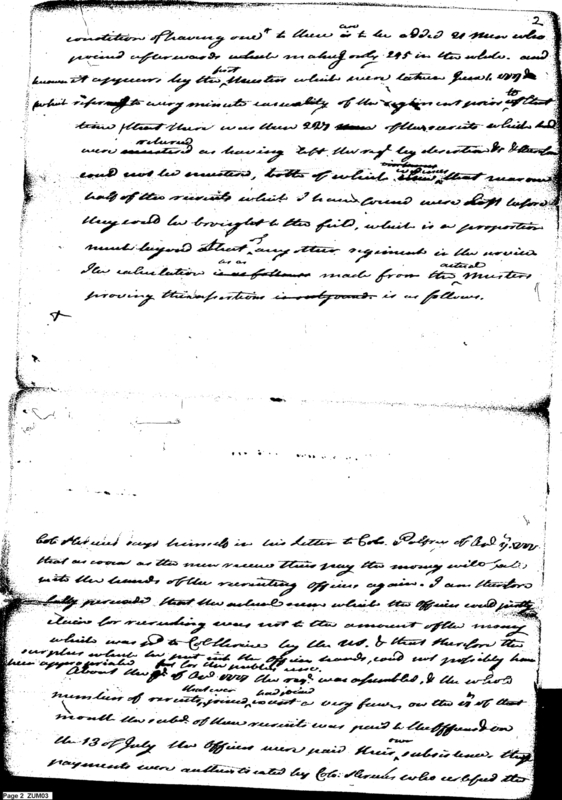 2
condition of having one to these is an to be added 21 men who
joined afterwards which making only 245 in the whole. and
it appears by the first Musters which were taken June 1. 1777
which to very minute casuality of the regiment prior to that
time that there was then 2 of the recruits which had
were mustered returned as having left the regt by desertion & &
could not be mustered, both of which that near one
half of the recruits which I have were lost before
they could be brought to the field, which is a proportion
much beyond that of any other regiment in the service
The calculation is as follows made from the actual Musters
proving this assertions is as follows.
Colo says himself in his letter to Colo. Palfrey of
that as soon as the men receive their pay the money will
into the hands of the recruiting officers again. I am therefore
fully persuaded that the actual sums which the Officers could justly
claim for recruiting was not to the amount of the money
which was pd to Col by the US. & that therefore the
surplus which he put into the Officers hands, could not possibly have
been appropriated for the publick use.
About the of the regt was assembled, & the whole
number of recruits, that ever joined, had joined except a very few, on the of that
month the subs. of these recruits was paid to the Officers & on
the 13 of July the Officers were paid their own subsistence these
payments were authenticated by Colo. who certified the
Page 2 ZUM03